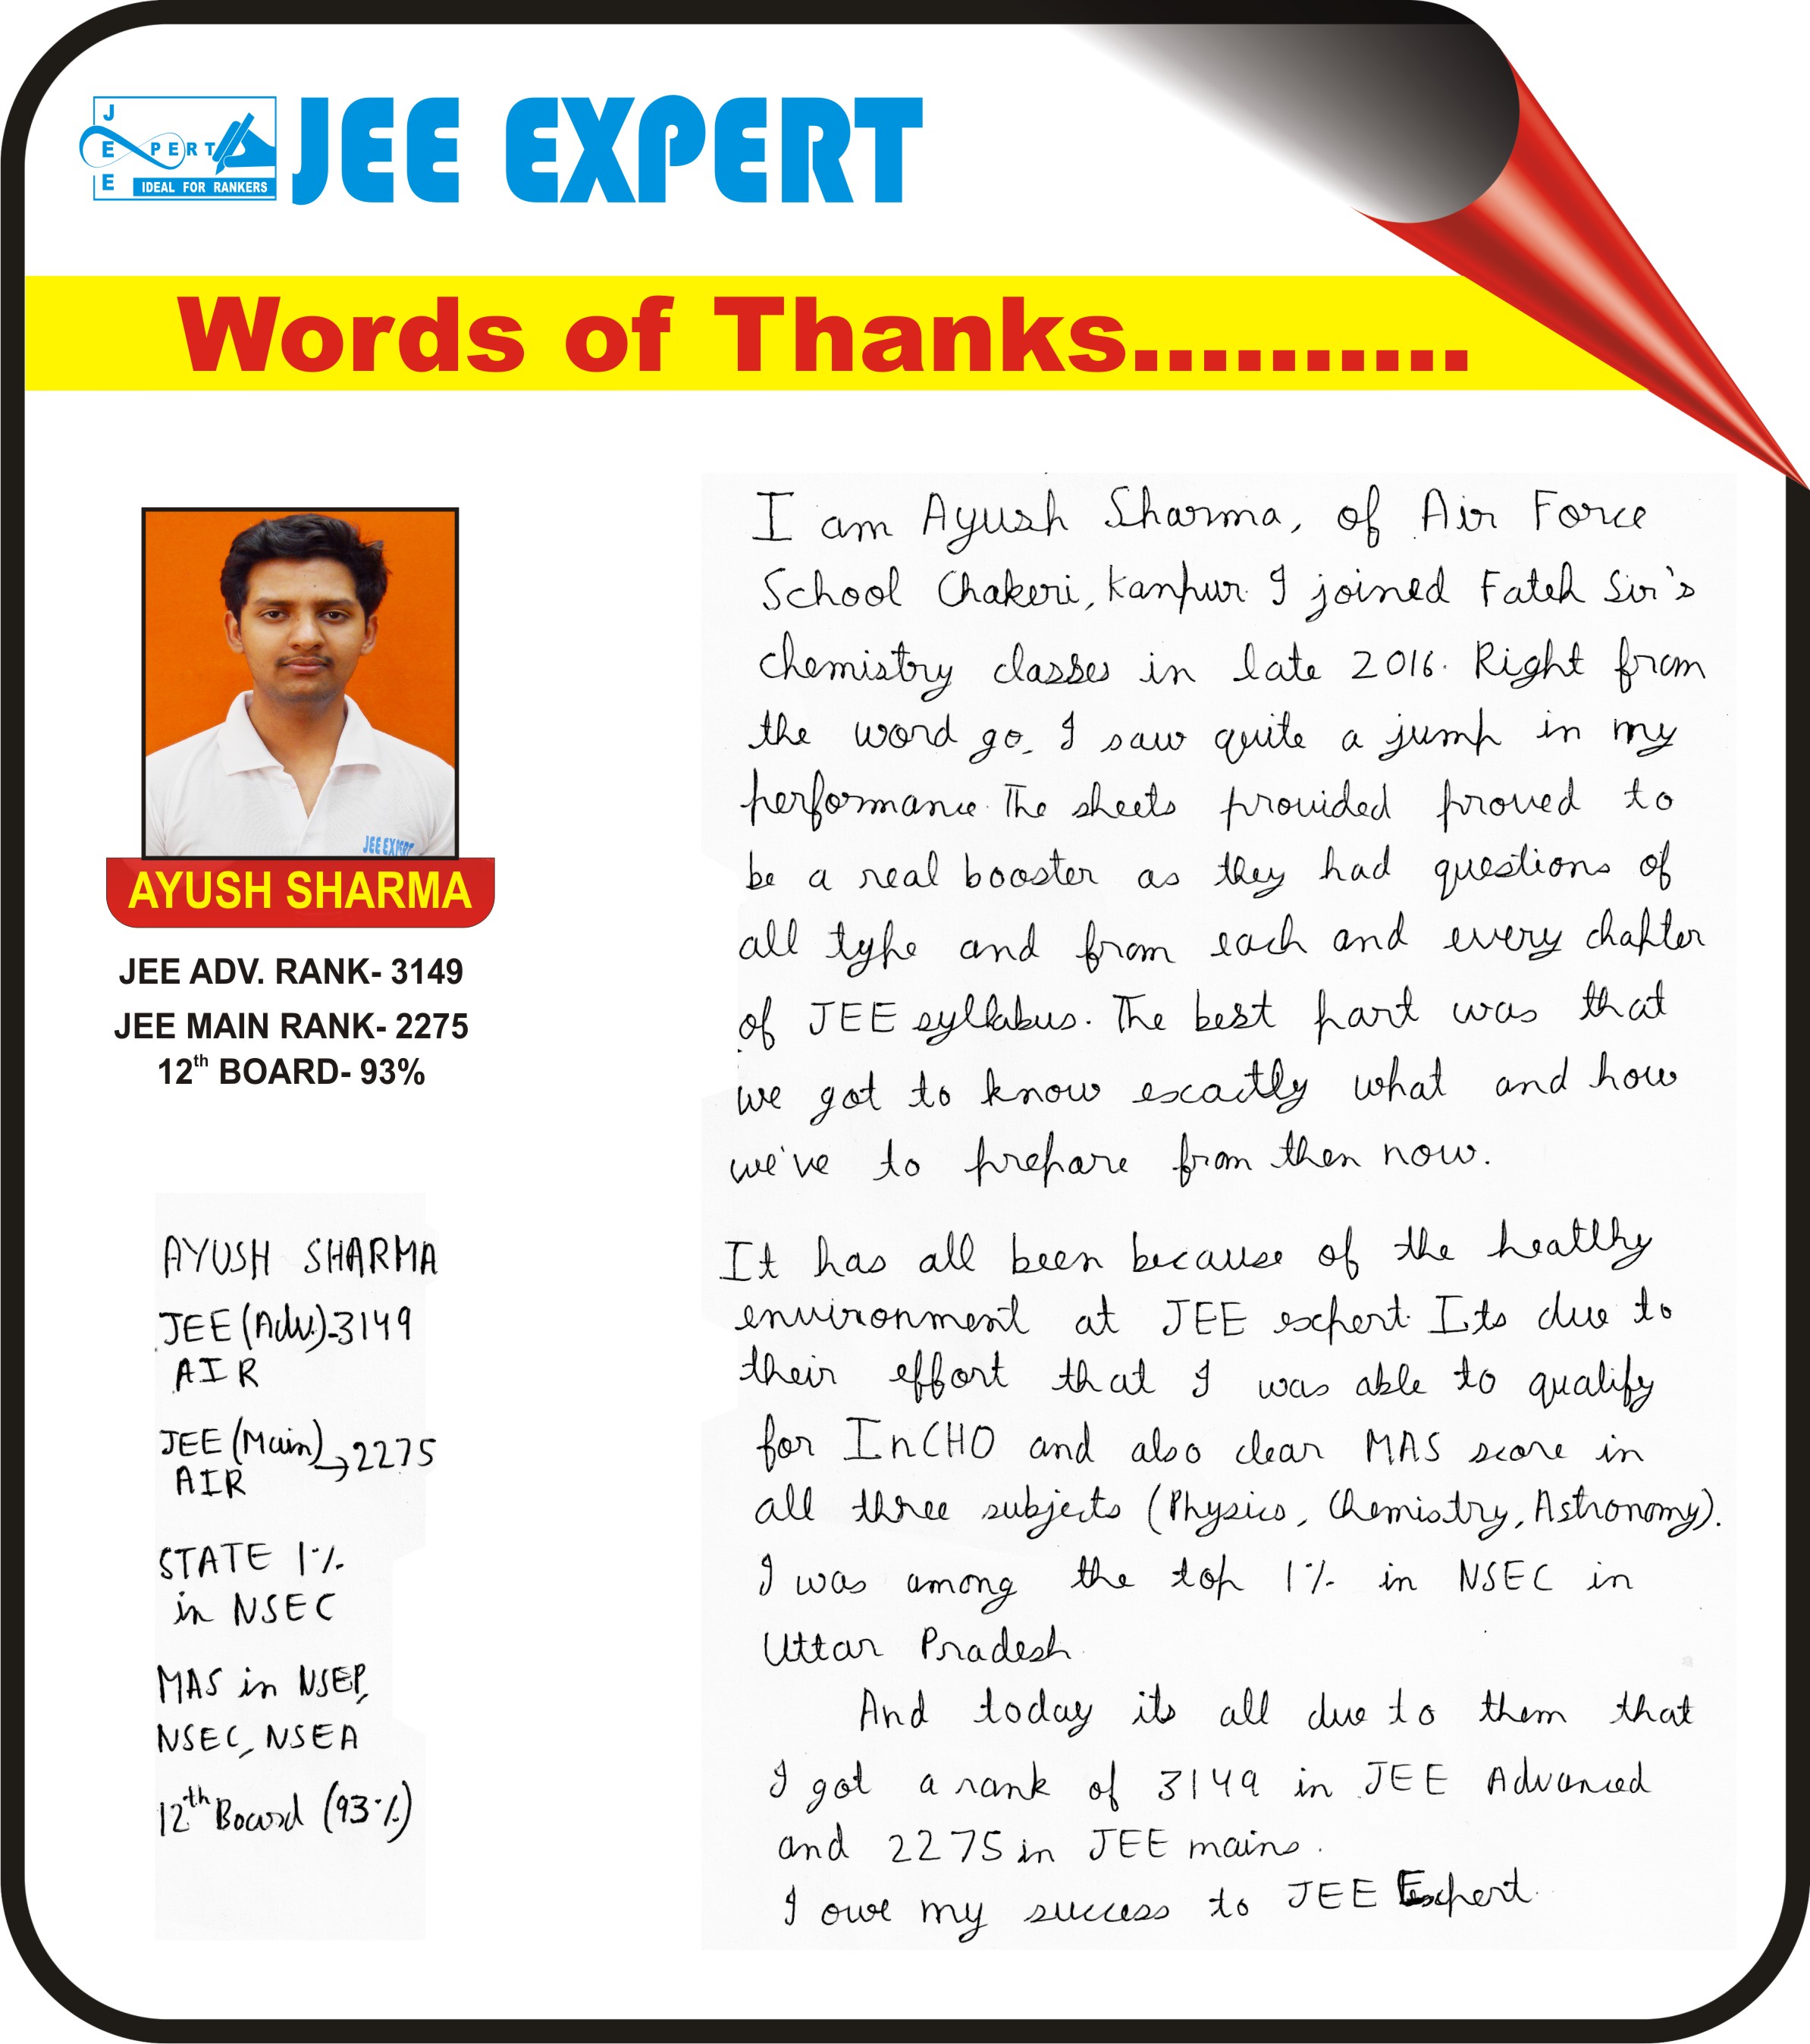 J
E PERT
E IDEAL FOR RANKERS
JEE EXPERT
Words of Thanks..........
JEE EXPERT
AYUSH SHARMA
JEE ADV. RANK- 3149
JEE MAIN RANK- 2275
12th BOARD- 93%
AYUSH SHARMA
JEE (Adv.)-3149
AIR
JEE (Main)→2275
AIR
STATE 1%
in NSEC
MAS in NSEP,
NSEC, NSEA
12th Board (93%)
I am Ayush Sharma, of Air Force
School Chakeri, Kanpur. I joined Fateh Sir's
chemistry classes in late 2016. Right from
the word go, I saw quite a jump in my
performance. The sheets provided proved to
be a real booster as they had questions of
all type and from each and every chapter
of JEE syllabus. The best part was that
we got to know exactly what and how
we've to prepare from then now.
It has all been because of the healthy
environment at JEE expert. Its due to
their effort that I was able to qualify
for InCHO and also clear MAS score in
all three subjects (Physics, Chemistry, Astronomy).
I was among the top 1% in NSEC in
Uttar Pradesh.
And today its all due to them that
I got a rank of 3149 in JEE Advanced
and 2275 in JEE mains.
I owe my success to JEE Expert.